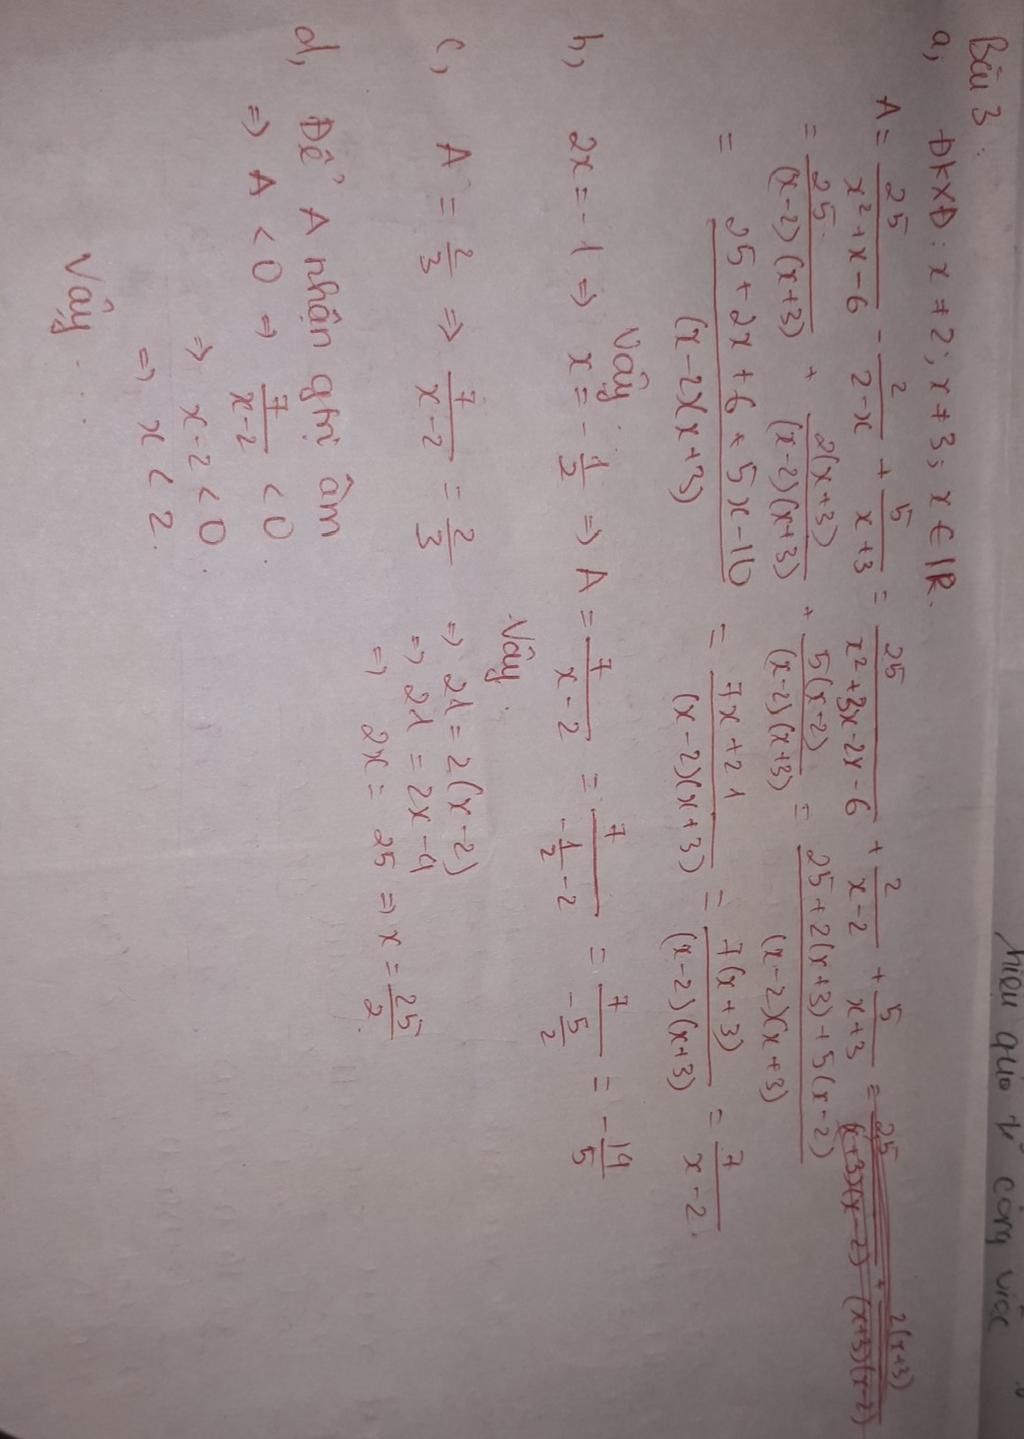 hiệu quả công việc
Bài 3:
a, ĐKXĐ: x ≠ 2; x ≠ 3; x ∈ IR.
A = 25/(x²+x-6) - 2/(2-x) + 5/(x+3) = 25/(x²+3x-2x-6) + 2/(x-2) + 5/(x+3) = 25/((x+3)(x-2)) + 2(x+3)/((x+3)(x-2))
= 25/((x-2)(x+3)) + 2(x+3)/((x-2)(x+3)) + 5(x-2)/((x-2)(x+3)) = (25+2(x+3)+5(x-2))/((x-2)(x+3))
= (25+2x+6+5x-10)/((x-2)(x+3)) = (7x+21)/((x-2)(x+3)) = 7(x+3)/((x-2)(x+3)) = 7/(x-2).
Vậy
b, 2x = -1 => x = -1/2 => A = 7/(x-2) = 7/(-1/2-2) = 7/(-5/2) = -14/5
Vậy.
c, A = 2/3 => 7/(x-2) = 2/3 => 21 = 2(x-2)
=> 21 = 2x-4
=> 2x = 25 => x = 25/2.
d, Để A nhận gtrị âm
=> A < 0 => 7/(x-2) < 0
=> x-2 < 0.
=> x < 2.
Vậy...